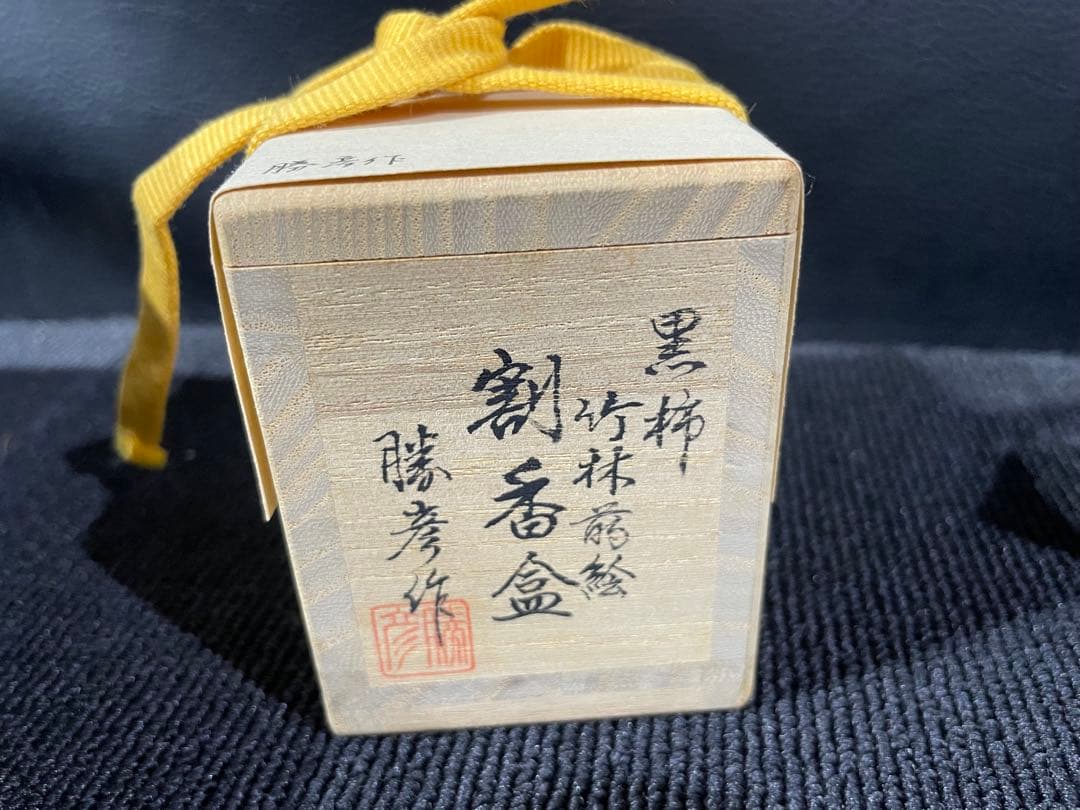 勝彦作
黒柿
竹林蒔絵
割香盒
勝彦作